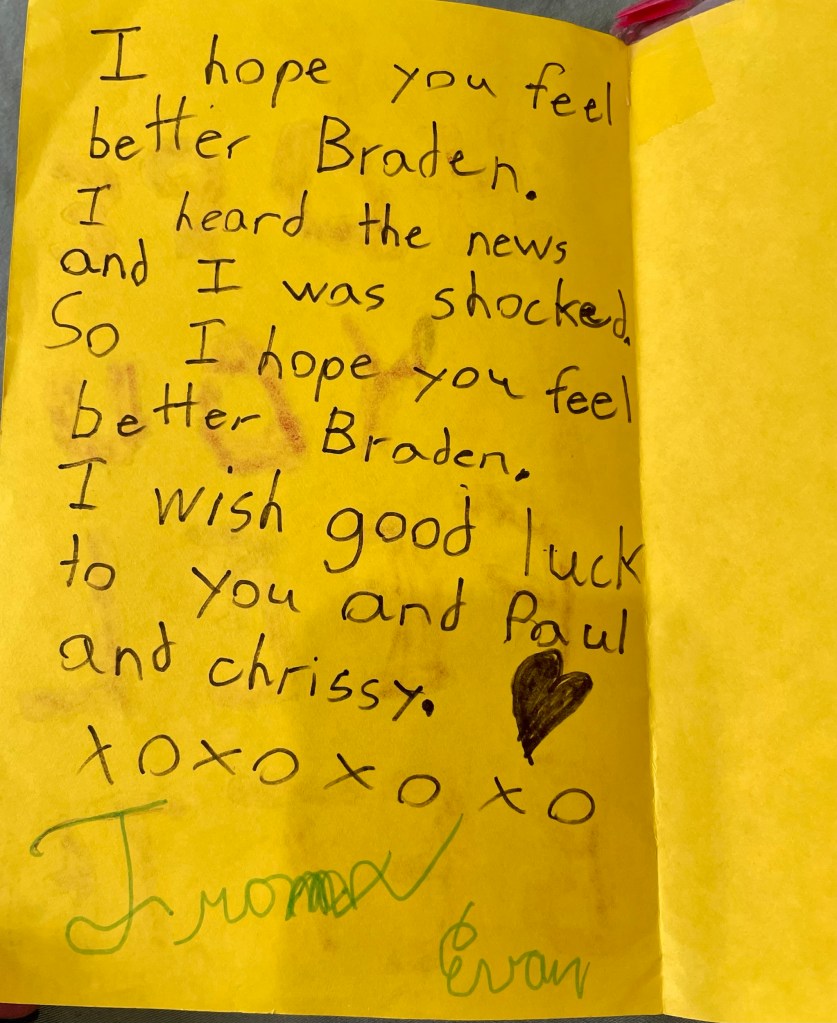 I hope you feel
better Braden.
I heard the news
and I was shocked.
So I hope you feel
better Braden.
I wish good luck
to you and Paul
and chrissy. ♥
xoxo xo xo
From
Evan